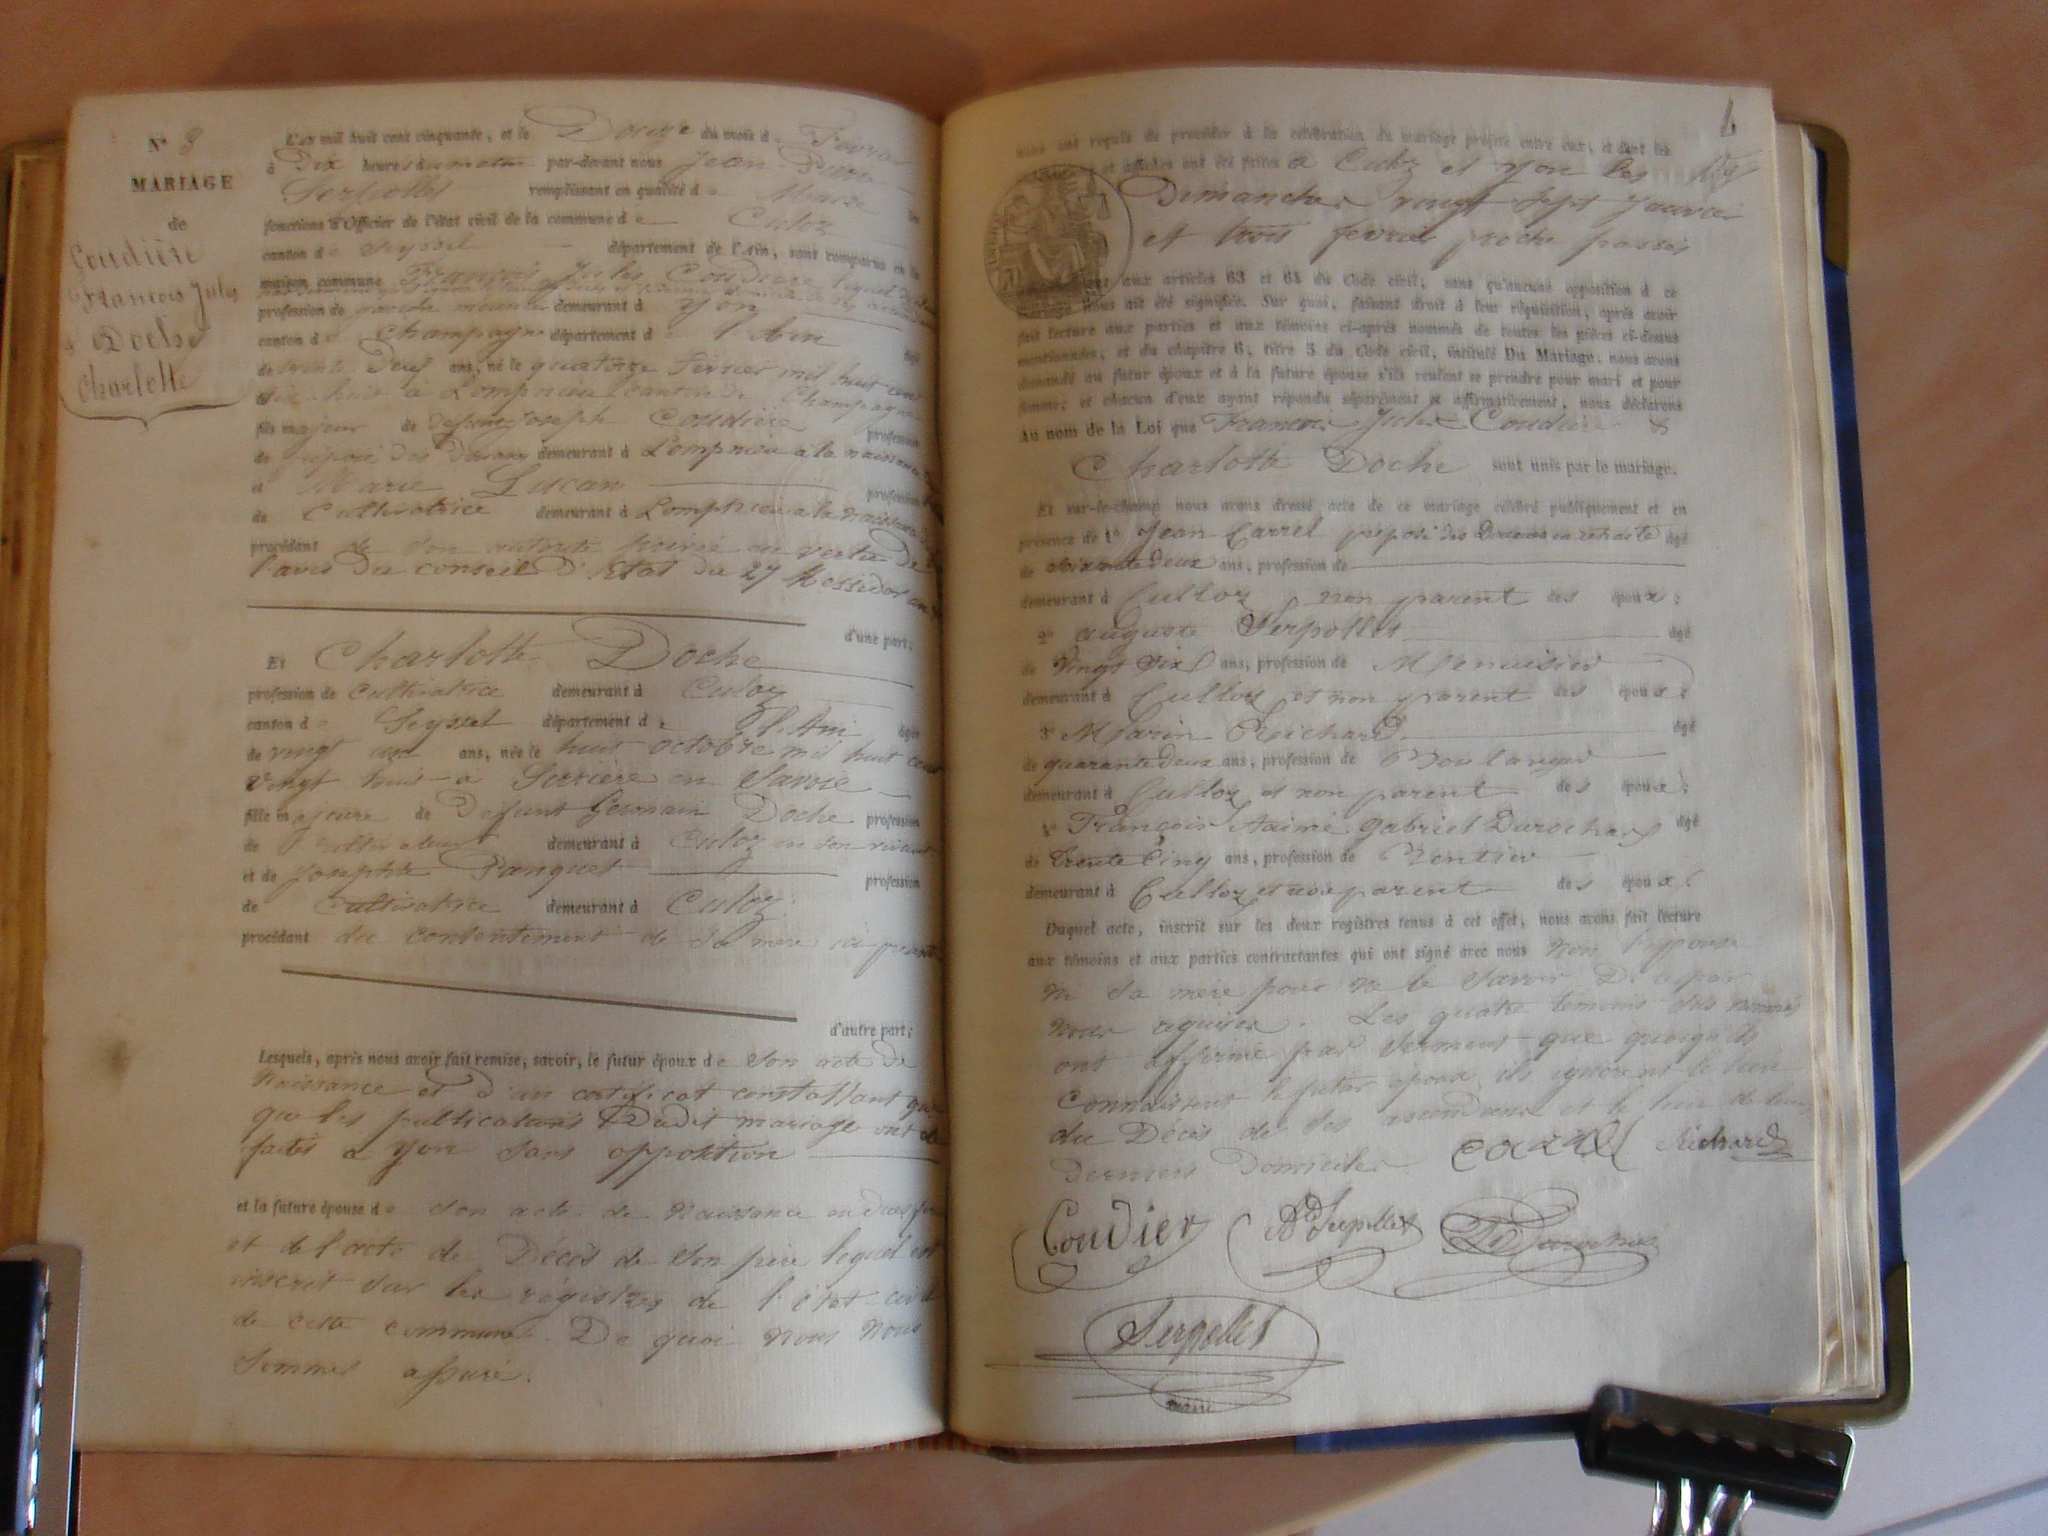 N° 8
MARIAGE
de
Coudière
François Jules
& Doche
Charlotte
L'an mil huit cent cinquante, et le Douze du mois de Février
à Dix heures du matin par-devant nous Jean Pierre
Serpollet remplissant en qualité de Maire les
fonctions d'Officier de l'état civil de la commune de Culoz
canton de Seyssel département de l'Ain, sont comparus en la
maison commune François Jules Coudière lequel
profession de garde demeurant à Yon
canton de Champagne département de l'Ain âgé
de trente Deux ans, né le quatorze Février mil huit cent
dix huit à Lompnieu canton de Champagne
fils majeur de Défunt Joseph Coudière profession
de préposé des Douanes demeurant à Lompnieu à la naissance
et Marie Lucan profession
de Cultivatrice demeurant à Lompnieu à la naissance
procédant de son autorité privée en vertu de
l'avis du conseil d'Etat du 27 Messidor an
d'une part;
Et Charlotte Doche
profession de Cultivatrice demeurant à Culoz
canton de Seyssel département de l'Ain âgée
de vingt un ans, née le huit octobre mil huit cent
vingt huit à Serrière en Savoie
fille majeure de Défunt Germain Doche profession
de Cultivateur demeurant à Culoz en son vivant
et de Josephte Panguet profession
de Cultivatrice demeurant à Culoz
procédant du consentement de sa mère ici présente
d'autre part;
Lesquels, après nous avoir fait remise, savoir, le futur époux de son acte de
Naissance et d'un certificat constattant que
que les publications Dudit mariage ont été
faites à Yon sans opposition
et la future épouse de son acte de Naissance
et de l'acte de Décès de son père lequel est
inscrit sur les régistres de l'état-civil
de cette commune. De quoi Nous Nous
sommes assuré.
6
nous ont requis de procéder à la célébration du mariage projeté entre eux, et dont les
et affiches ont été faites à Culoz et Yon les
Dimanches vingt sept Janvier
et trois fevrier proche passés
aux articles 63 et 64 du Code civil; sans qu'aucune opposition à ce
mariage nous ait été signifiée. Sur quoi, faisant droit à leur réquisition, après avoir
fait lecture aux parties et aux témoins ci-après nommés de toutes les pièces ci-dessus
mentionnées, et du chapitre 6, titre 5 du Code civil, intitulé Du Mariage, nous avons
demandé au futur époux et à la future épouse s'ils veulent se prendre pour mari et pour
femme; et chacun d'eux ayant répondu séparément et affirmativement, nous déclarons
Au nom de la Loi que François Jules Coudière &
Charlotte Doche sont unis par le mariage.
Et sur-le-champ nous avons dressé acte de ce mariage célébré publiquement et en
présence de 1° Jean Carrel préposé des Douanes en retraite âgé
de soixante deux ans, profession de
demeurant à Culloz non parent des époux;
2° Auguste Serpollet âgé
de Vingt Six ans, profession de Menuisier
demeurant à Culloz et non parent des époux;
3° Marin Richard âgé
de quarante deux ans, profession de Boulanger
demeurant à Culloz et non parent des époux;
4° François Aaimé Gabriel Durochas âgé
de Trente Cinq ans, profession de Rentier
demeurant à Culloz et non parent des époux;
Duquel acte, inscrit sur les deux registres tenus à cet effet, nous avons fait lecture
aux témoins et aux parties contractantes qui ont signé avec nous non l'épouse
ni sa mère pour ne le savoir De ce par
nous requises. Les quatre témoins sus nommés
ont affirmé par serment que quoiqu'ils
connaissent le futur époux, ils ignorent le lieu
du Décès de ses ascendans et le lieu de leurs
Derniers Domiciles
Carrel Richard
Coudier Ate Serpollet
Serpollet
maire